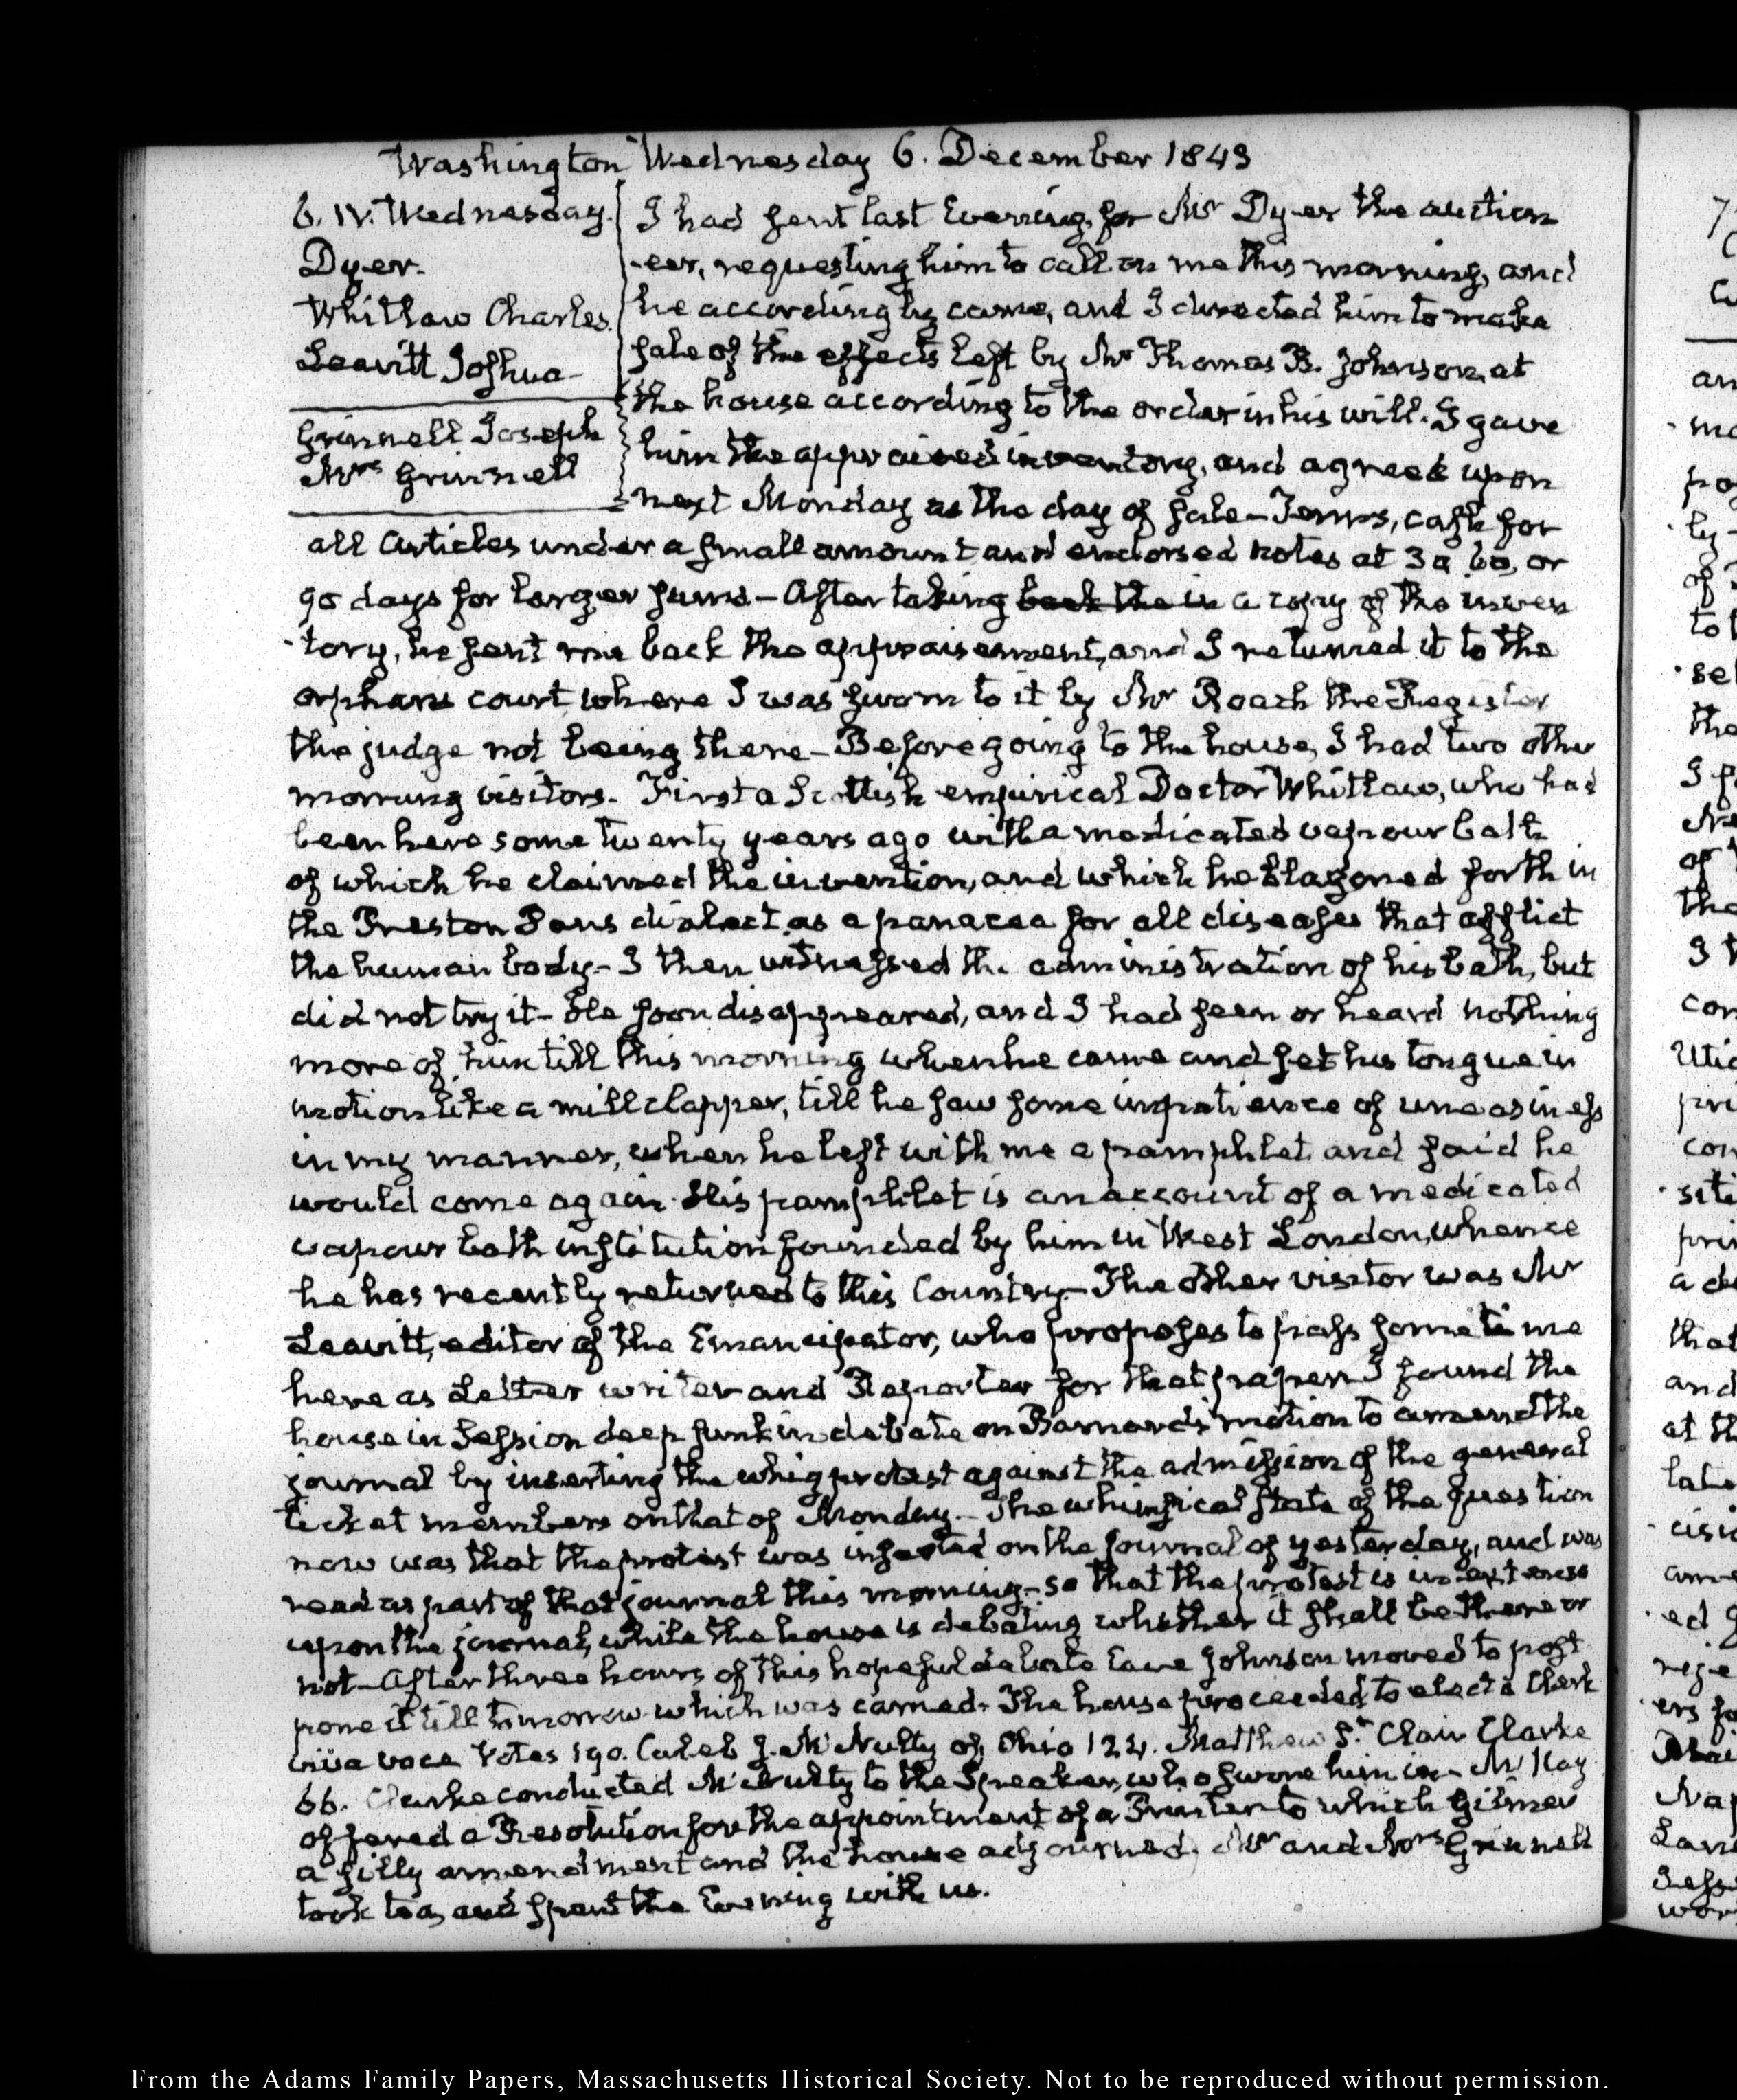 Washington Wednesday 6. December 1843
6. IV. Wednesday.
Dyer.
Whitlaw Charles.
Leavitt Joshua
Grinnell Joseph
Mrs Grinnell
I had sent last Evening, for Mr Dyer the auction
-eer, requesting him to call on me this morning, and
he accordingly came, and I directed him to make
sale of the effects left by Mr Thomas B. Johnson, at
the house according to the order in his will. I gave
him the appraised inventory, and agreed upon
next Monday as the day of sale – Terms, cash for
all articles under a small amount and endorsed notes at 30 60, or
90 days for larger sums – After taking back the in a copy of the inven
-tory, he sent me back the appraisement, and I returned it to the
orphans court where I was sworn to it by Mr Roach the Register
the judge not being there – Before going to the house, I had two other
morning visitors. First a Scottish empirical Doctor Whitlaw, who had
been here some twenty years ago with a medicated vapour bath
of which he claimed the invention, and which he blazoned forth in
the Preston Pans dialect as a panacea for all diseases that afflict
the human body – I then witnessed the administration of his bath, but
did not try it – He soon disappeared, and I had seen or heard nothing
more of him till this morning when he came and set his tongue in
motion like a mill clapper, till he saw some impatience of uneasiness
in my manner, when he left with me a pamphlet and said he
would come again. His pamphlet is an account of a medicated
vapour bath institution founded by him in West London, whence
he has recently returned to this Country – The other visitor was Mr
Leavitt, editor of the Emancipator, who proposes to pass some time
here as Letter writer and Reporter for that paper I found the
house in Session deep sunk in debate on Barnard's motion to amend the
journal by inserting the whig protest against the admission of the general
ticket members on that of Monday – The whimsical state of the question
now was that the protest was inserted on the journal of yesterday, and was
read as part of that journal this morning – so that the protest is in extenso
upon the journal, while the house is debating whether it shall be there or
not – After three hours of this hopeful debate Cave Johnson moved to post
pone it till tomorrow which was carried – The house proceeded to elect a Clerk
viva voce Votes 190. Caleb J. McNulty of Ohio 124. Matthew St. Clair Clarke
66. Clarke conducted McNulty to the Speaker, who swore him in – McKay
offered a Resolution for the appointment of a Printer to which Gilmer
a silly amendment and the house adjourned. Mr and Mrs Grinnell
took tea, and spent the Evening with us.
From the Adams Family Papers, Massachusetts Historical Society. Not to be reproduced without permission.